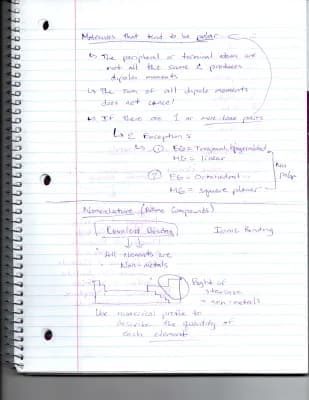 Molecules that tend to be polar
↳ The peripheral or terminal atoms are
not all the same & produces
dipole moments
↳ The sum of all dipole moments
does not cancel
↳ If there are 1 or more lone pairs
↳ 2 Exceptions
↳ ① EG = Trigonal Bipyramidal
MG = linear
② EG = Octahedral
MG = square planar
Non polar
Nomenclature (Naming Compounds)
Covalent Bonding
Ionic Bonding
All elements are
Non-metals
Right of
staircase
= non-metals
Use numerical prefix to
describe the quantity of
each element